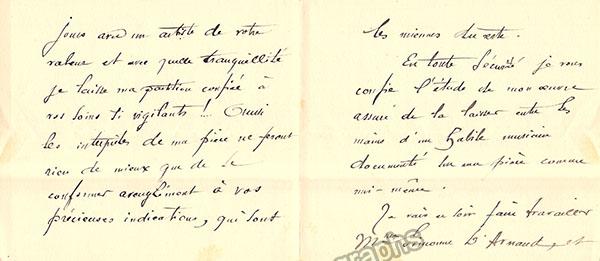 jours avec un artiste de votre
valeur et avec quelle tranquillité
je laisse ma partition confiée à
vos soins si vigilants !.. Aussi
les interprètes de ma pièce ne feront
rien de mieux que de se
conformer aveuglément à vos
précieuses indications, qui sont
les miennes du reste.
En toute sécurité je vous
confie l'étude de mon œuvre
assuré de la laisser entre les
mains d'un habile musicien
documenté sur ma pièce comme
moi-même.
Je vais ce soir faire travailler
Mme Simonne D'Arnaud, et
graphs